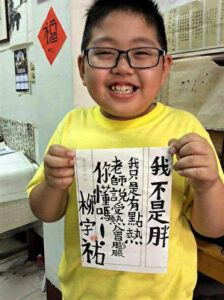 我不是胖
我只是有點熱
老師說受熱會膨脹
你懂嗎！
柳宇祐
福